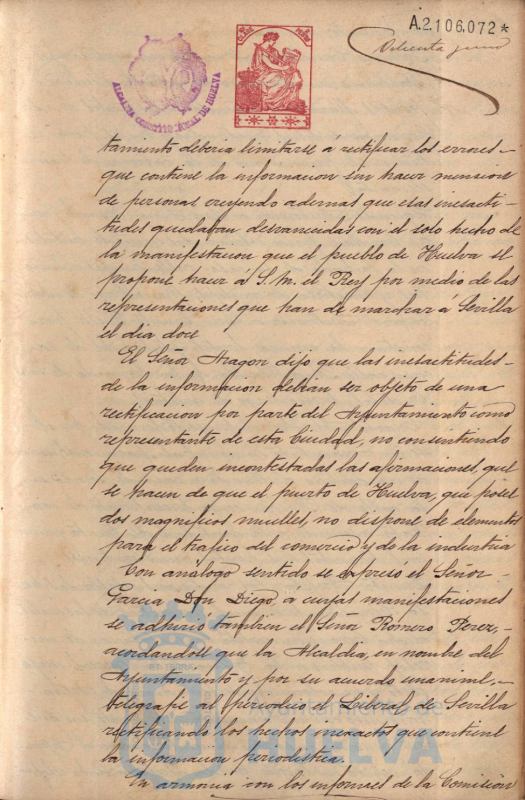 A.2.106.072*
Ochenta y uno
ALCALDIA CONSTITUCIONAL DE HUELVA
tamiento deberia limitarse á rectificar los errores-
que contiene la informacion sin hacer mencion
de personas creyendo ademas que esas inesacti-
tudes quedaban desvanecidas con el solo hecho de
la manifestacion que el pueblo de Huelva se
propone hacer á S. M. el Rey por medio de las
representaciones que han de marchar á Sevilla
el dia doce
El Señor Aragon dijo que las inesactitudes-
de la informacion debian ser objeto de una
rectificacion por parte del Ayuntamiento como
representante de esta Ciudad, no consintiendo
que queden incontestadas las afirmaciones, que
se hacen de que el puerto de Huelva, que posee
dos magnificos muelles, no dispone de elementos
para el trafico del comercio y de la industria
Con análogo sentido se expresó el Señor-
Garcia Don Diego, á cuyas manifestaciones
se adhirió tambien el Señor Romero Perez,-
acordandose que la Alcaldia, en nombre del
Ayuntamiento y por su acuerdo unanime,-
telegrafie al periodico el Liberal de Sevilla
rectificando los hechos inexactos que contiene
la informacion periodistica.
En armonia con los informes de la Comisión
Ayuntamiento de
HUELVA